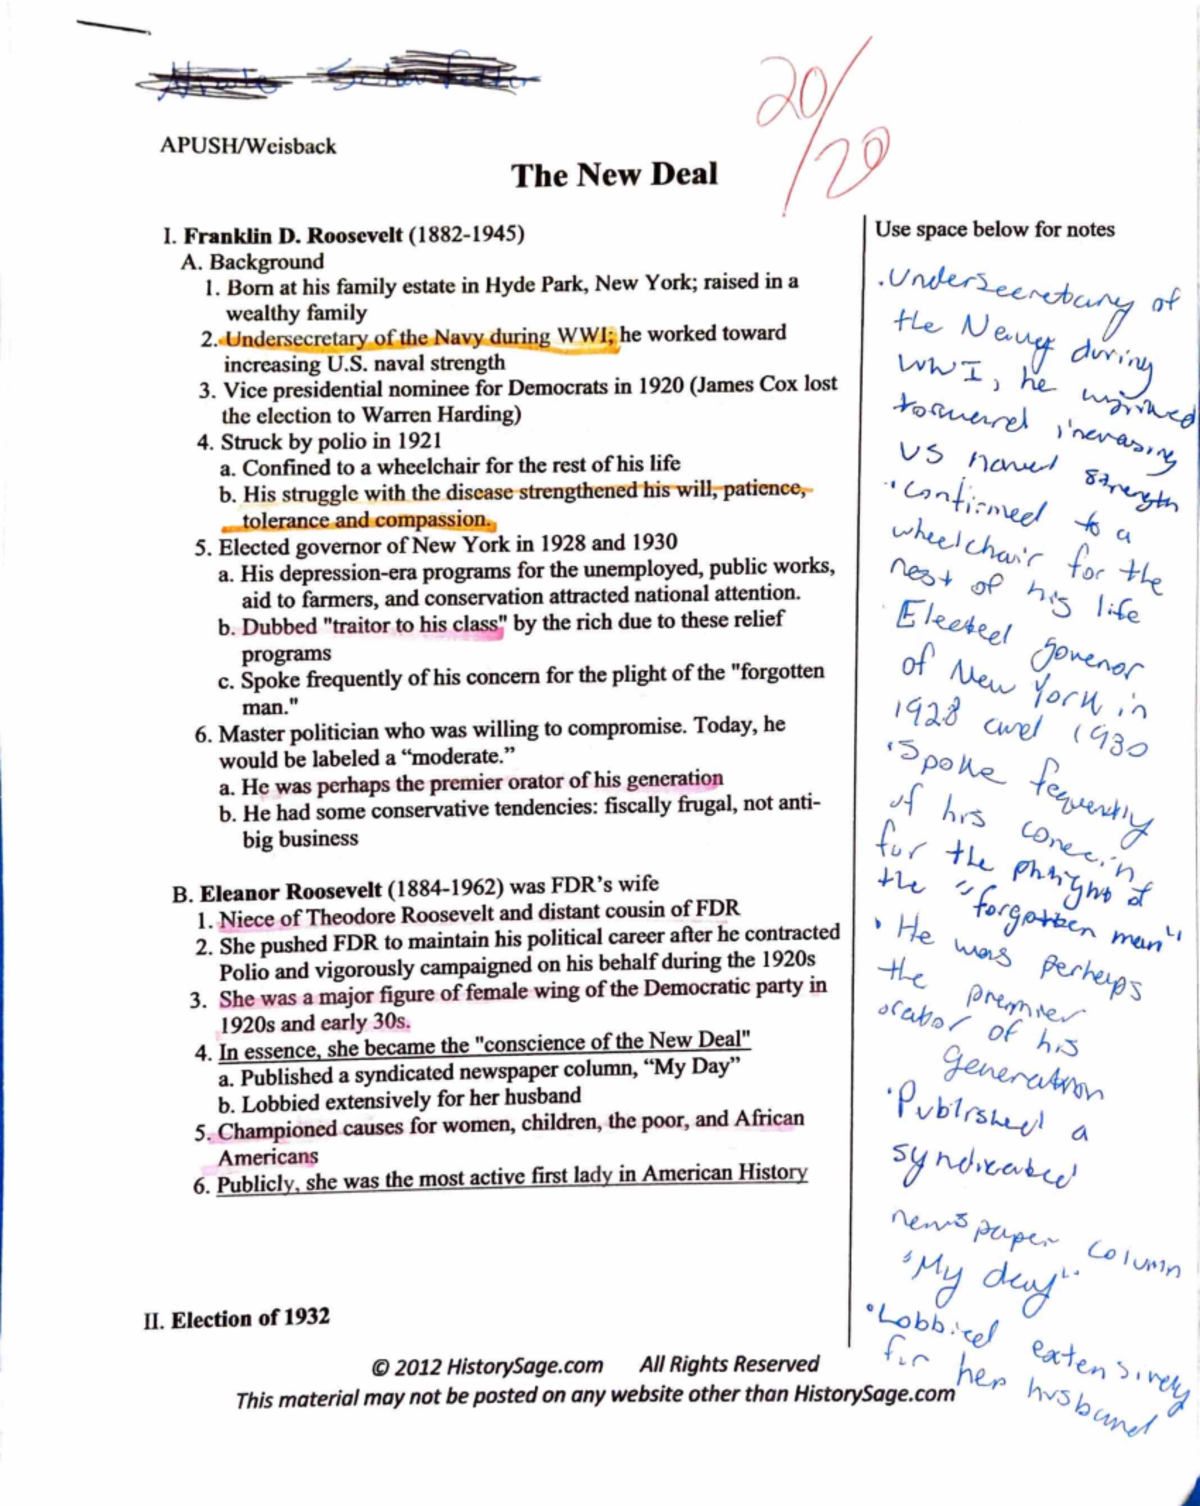 20/20
APUSH/Weisback
The New Deal
I. Franklin D. Roosevelt (1882-1945)
A. Background
1. Born at his family estate in Hyde Park, New York; raised in a
wealthy family
2. Undersecretary of the Navy during WWI; he worked toward
increasing U.S. naval strength
3. Vice presidential nominee for Democrats in 1920 (James Cox lost
the election to Warren Harding)
4. Struck by polio in 1921
a. Confined to a wheelchair for the rest of his life
b. His struggle with the disease strengthened his will, patience,
tolerance and compassion.
5. Elected governor of New York in 1928 and 1930
a. His depression-era programs for the unemployed, public works,
aid to farmers, and conservation attracted national attention.
b. Dubbed "traitor to his class" by the rich due to these relief
programs
c. Spoke frequently of his concern for the plight of the "forgotten
man."
6. Master politician who was willing to compromise. Today, he
would be labeled a “moderate.”
a. He was perhaps the premier orator of his generation
b. He had some conservative tendencies: fiscally frugal, not anti-
big business
B. Eleanor Roosevelt (1884-1962) was FDR’s wife
1. Niece of Theodore Roosevelt and distant cousin of FDR
2. She pushed FDR to maintain his political career after he contracted
Polio and vigorously campaigned on his behalf during the 1920s
3. She was a major figure of female wing of the Democratic party in
1920s and early 30s.
4. In essence, she became the "conscience of the New Deal"
a. Published a syndicated newspaper column, “My Day”
b. Lobbied extensively for her husband
5. Championed causes for women, children, the poor, and African
Americans
6. Publicly, she was the most active first lady in American History
II. Election of 1932
Use space below for notes
·Undersecretary of
the Navy during
WWI, he worked
toward increasing
US naval strength
·Confirmed to a
wheelchair for the
rest of his life
·Elected govenor
of New York in
1928 and 1930
·Spoke fequently
of his concern
for the of
the "forgotten man"
·He was perhaps
the premier
orator of his
generation
·Published a
syndicated
newspaper column
"My day"
·Lobbied extensively
for her husband
© 2012 HistorySage.com All Rights Reserved
This material may not be posted on any website other than HistorySage.com